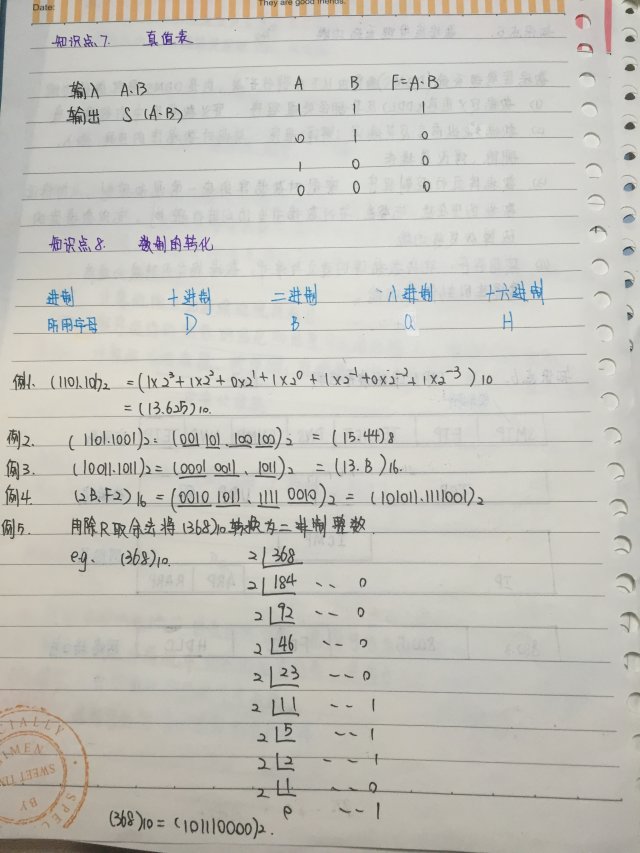 Date:
They are good friends.
知识点7. 真值表
输入 A.B A B F=A·B
输出 S (A·B) 1 1 1
0 1 0
1 0 0
0 0 0
知识点8. 数制的转化
进制 十进制 二进制 八进制 十六进制
所用字母 D B Q H
例1. (1101.101)₂ = (1×2³+1×2²+0×2¹+1×2⁰+1×2⁻¹+0×2⁻²+1×2⁻³)10
= (13.625)10.
例2. (1101.1001)₂ = (001 101.100 100)₂ = (15.44)8
例3. (10011.1011)₂ = (0001 0011.1011)₂ = (13.B)16.
例4. (2B.F2)16 = (0010 1011.1111 0010)₂ = (101011.1111001)₂
例5. 用除R取余法将(368)10转换为二进制整数.
e.g. (368)10. 2 368
2 184 -- 0
2 92 -- 0
2 46 -- 0
2 23 -- 0
2 11 -- 1
2 5 -- 1
2 2 -- 1
2 1 -- 0
0 -- 1
(368)10 = (101110000)₂.
SWEET TIME
BY